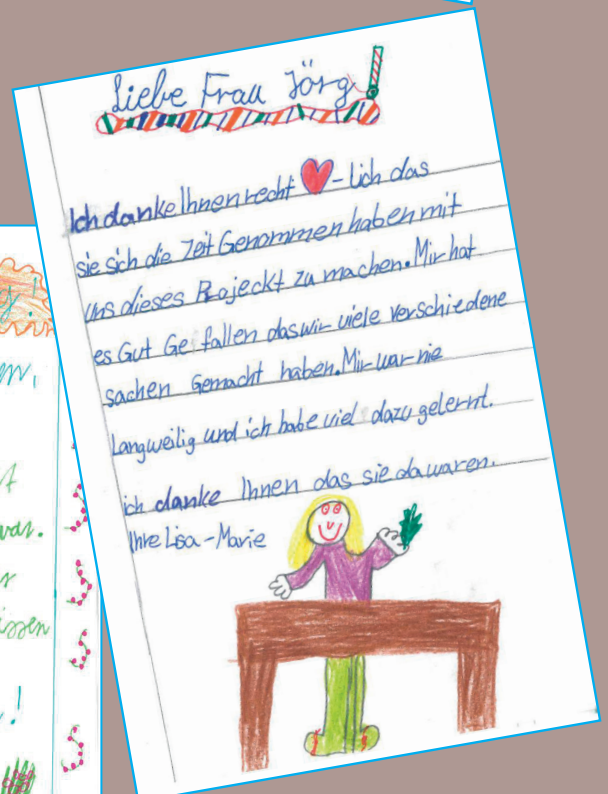 Liebe Frau Jörg
Ich danke Ihnen recht ❤-lich das
sie sich die Zeit Genommen haben mit
uns dieses Projeckt zu machen. Mir hat
es Gut Gefallen das wir viele verschiedene
sachen Gemacht haben. Mir war nie
Langweilig und ich habe viel dazu gelernt.
ich danke Ihnen das sie da waren.
Ihre Lisa-Marie
!
var.
issen
!